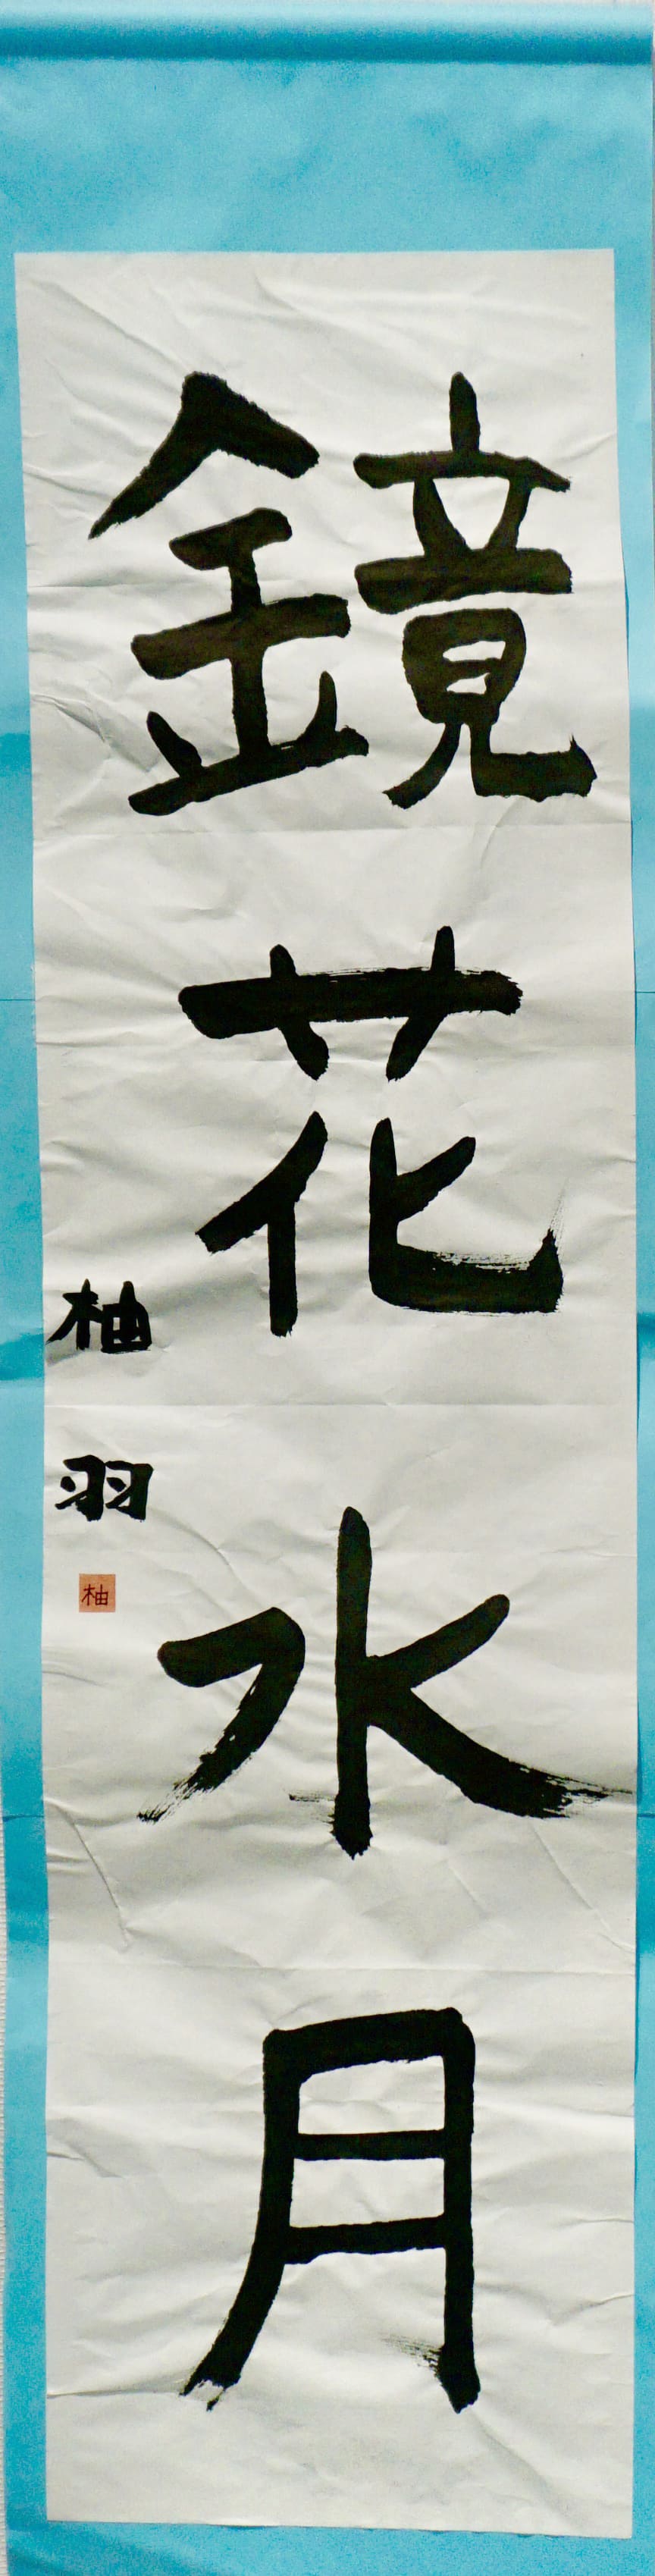 鏡花水月
柚羽
柚